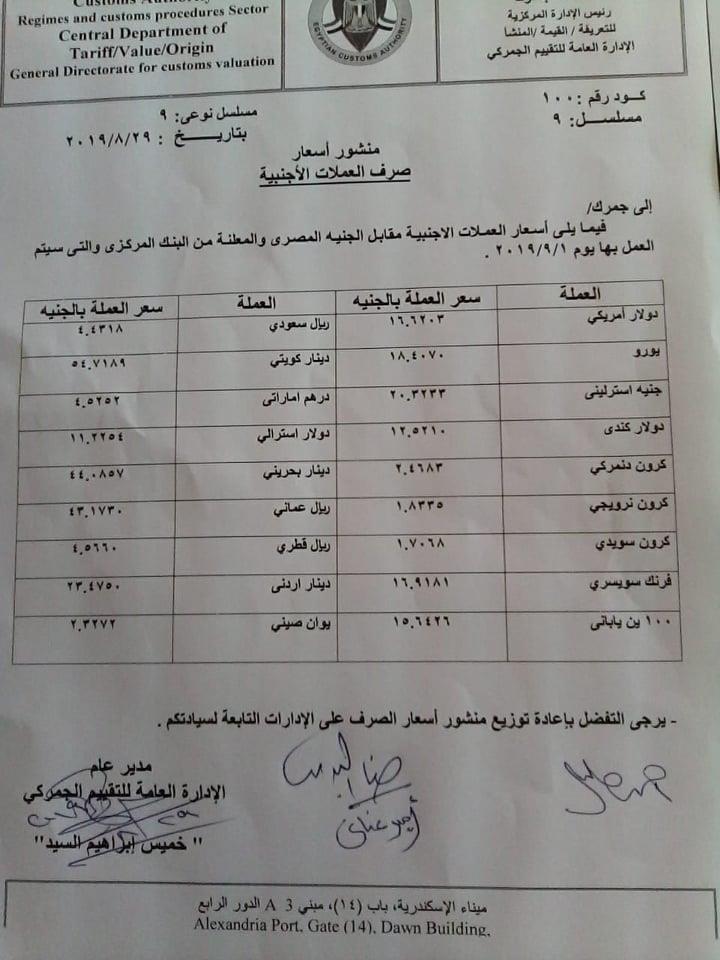 Regimes and customs procedures Sector
Central Department of
Tariff/Value/Origin
General Directorate for customs valuation
EGYPTIAN CUSTOMS AUTHORITY
رئيس الإدارة المركزية
للتعريفة / القيمة /المنشا
الإدارة العامة للتقييم الجمركي
كـود رقم : ١٠٠
مسلســل: ٩
مسلسل نوعى: ٩
بتاريـــــخ : ٢٠١٩/٨/٢٩
منشور أسعار
صرف العملات الأجنبية
إلى جمرك/
فيما يلى أسعار العملات الاجنبية مقابل الجنيه المصرى والمعلنة من البنك المركزى والتى سيتم
العمل بها يوم ٢٠١٩/٩/١ .
العملة سعر العملة بالجنيه العملة سعر العملة بالجنيه
دولار أمريكي ١٦.٦٢٠٣ ريال سعودي ٤.٤٣١٨
يورو ١٨.٤٠٧٠ دينار كويتي ٥٤.٧١٨٩
جنيه استرلينى ٢٠.٣٢٣٣ درهم اماراتى ٤.٥٢٥٢
دولار كندى ١٢.٥٢١٠ دولار استرالي ١١.٢٢٥٤
كرون دنمركي ٢.٤٦٨٣ دينار بحريني ٤٤.٠٨٥٧
كرون نرويجي ١.٨٣٣٥ ريال عماني ٤٣.١٧٣٠
كرون سويدي ١.٧٠٦٨ ريال قطري ٤.٥٦٦٠
فرنك سويسري ١٦.٩١٨١ دينار اردنى ٢٣.٤٧٥٠
١٠٠ ين يابانى ١٥.٦٤٢٦ يوان صيني ٢.٣٢٧٢
- يرجى التفضل بإعادة توزيع منشور أسعار الصرف على الإدارات التابعة لسيادتكم .
مدير عام
الإدارة العامة للتقييم الجمركي
" خميس إبراهيم السيد"
ميناء الإسكندرية، باب (١٤)، مبني A 3 الدور الرابع
Alexandria Port, Gate (14), Dawn Building,